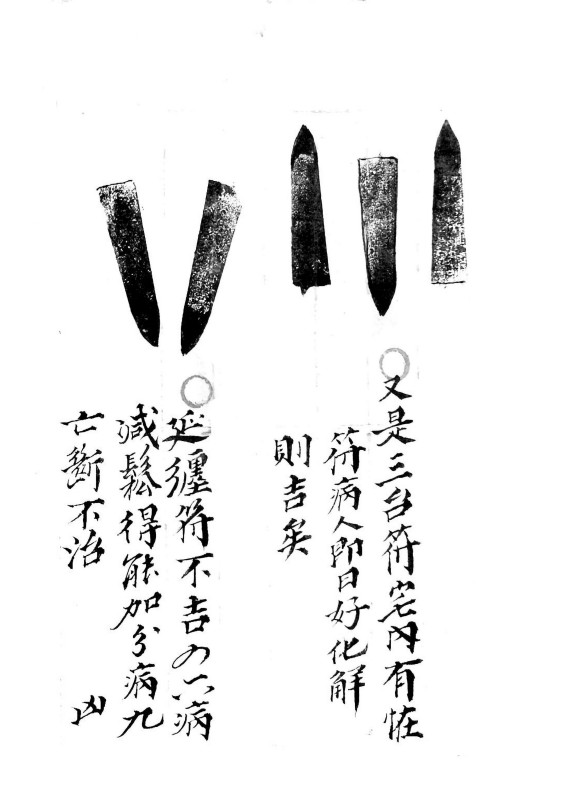 又是三台符宅內有怪
符病人即日好化解
則吉矣
延纏符不吉の六病
減鬆得能加分病九
亡斷不治 凶